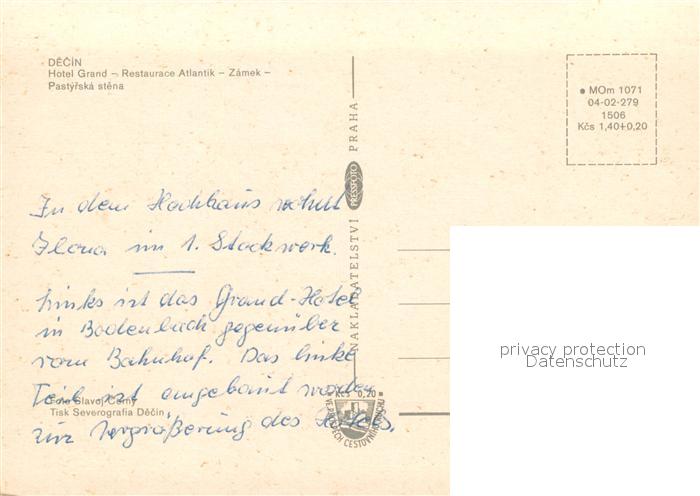 DĚČÍN
Hotel Grand – Restaurace Atlantik – Zámek –
Pastýřská stěna
● MOm 1071
04-02-279
1506
Kčs 1,40+0,20
NAKLADATELSTVÍ PRESSFOTO PRAHA
In dem Hochhaus wohnt
Ilona im 1. Stockwerk.
Links ist das Grand-Hotel
in Bodenbach gegenüber
vom Bahnhof. Das linke
Teil ist angebaut worden
zur Vergrößerung des Hotels.
Foto Slavoj Černý
Tisk Severografia Děčín
Kčs 0,20
CESTOVNÍHO RUCHU
privacy protection
Datenschutz